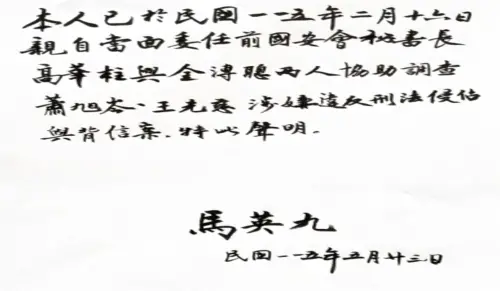 本人已於民國一一五年二月十六日
親自當面委任前國安會秘書長
高華柱與金溥聰兩人協助調查
蕭旭岑、王光慈涉嫌違反刑法侵佔
與背信案.特此聲明.
馬英九
民國一一五年五月廿三日